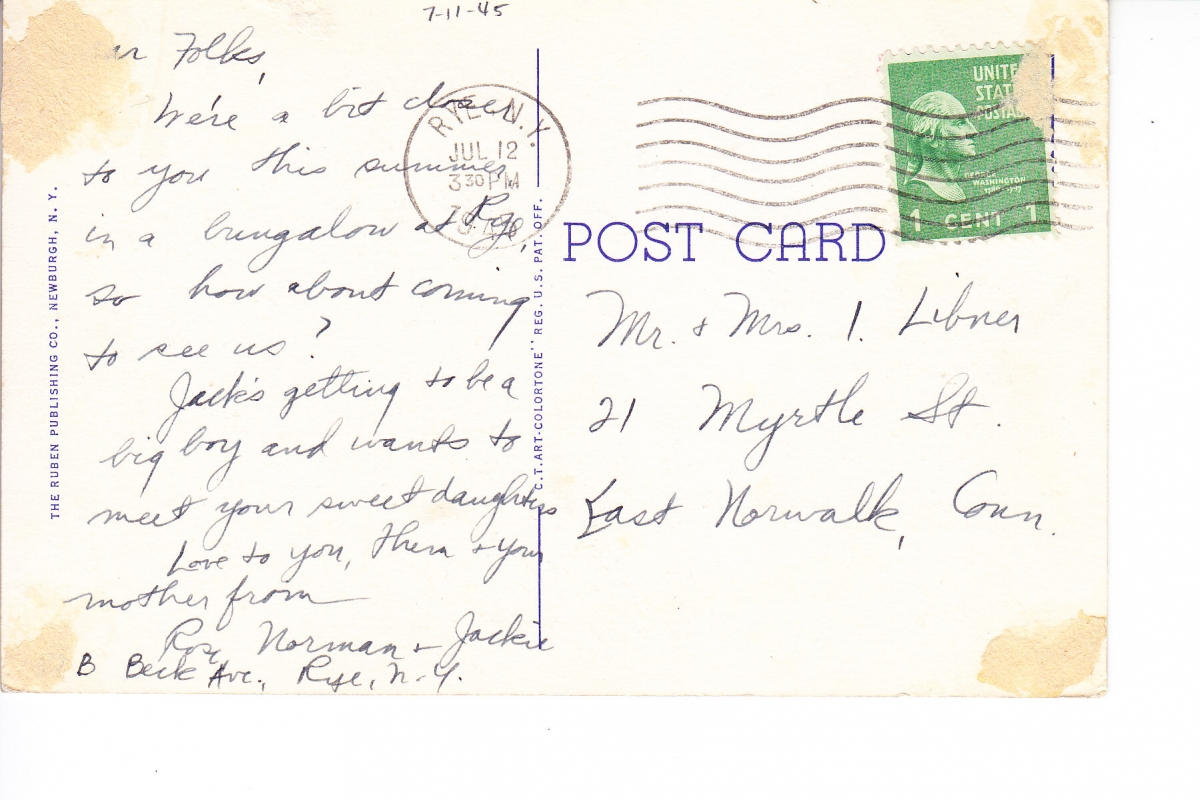 7-11-45
Folks,
We're a bit closer
to you this summer
in a bungalow at Rye,
so how about coming
to see us?
Jack's getting to be a
big boy and wants to
meet your sweet daughters
Love to you, them & your
mother from
Roz, Norman & Jackie
B Beck Ave., Rye, N.Y.
THE RUBEN PUBLISHING CO., NEWBURGH, N. Y.
C.T. ART-COLORTONE" REG. U.S. PAT. OFF.
RYE N.Y.
JUL 12
3 30 PM
POST CARD
UNITE
STAT
POSTA
GEORGE
WASHINGTON
1 CENT 1
Mr. & Mrs. I. Libner
21 Myrtle St.
East Norwalk, Conn.